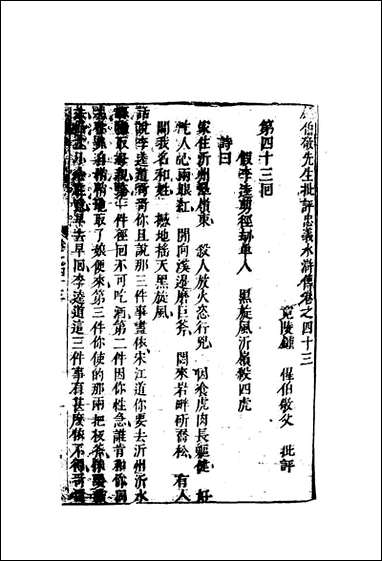 伯敬先生批評忠義水滸傳卷之四十三
竟陵鍾惺伯敬父 批評
第四十三回
假李逵剪徑劫單人 黑旋風沂嶺殺四虎
詩曰
家住沂州翠嶺東 殺人放火恣行兇 因飡虎肉長軀健 好
人心兩眼紅 閒向溪邊磨巨斧 悶來岩畔斫喬松 有人
問我名和姓 撼地搖天黑旋風
話說李逵道哥哥你且說那三件事盡依宋江道你要去沂州沂水
縣搬取母親第一件徑回不可吃酒第二件因你性急誰肯和你同
去你只自悄悄地取了娘便來第三件你使的那兩把板斧休要
早去早回李逵道這三件事有甚麼依不得哥哥